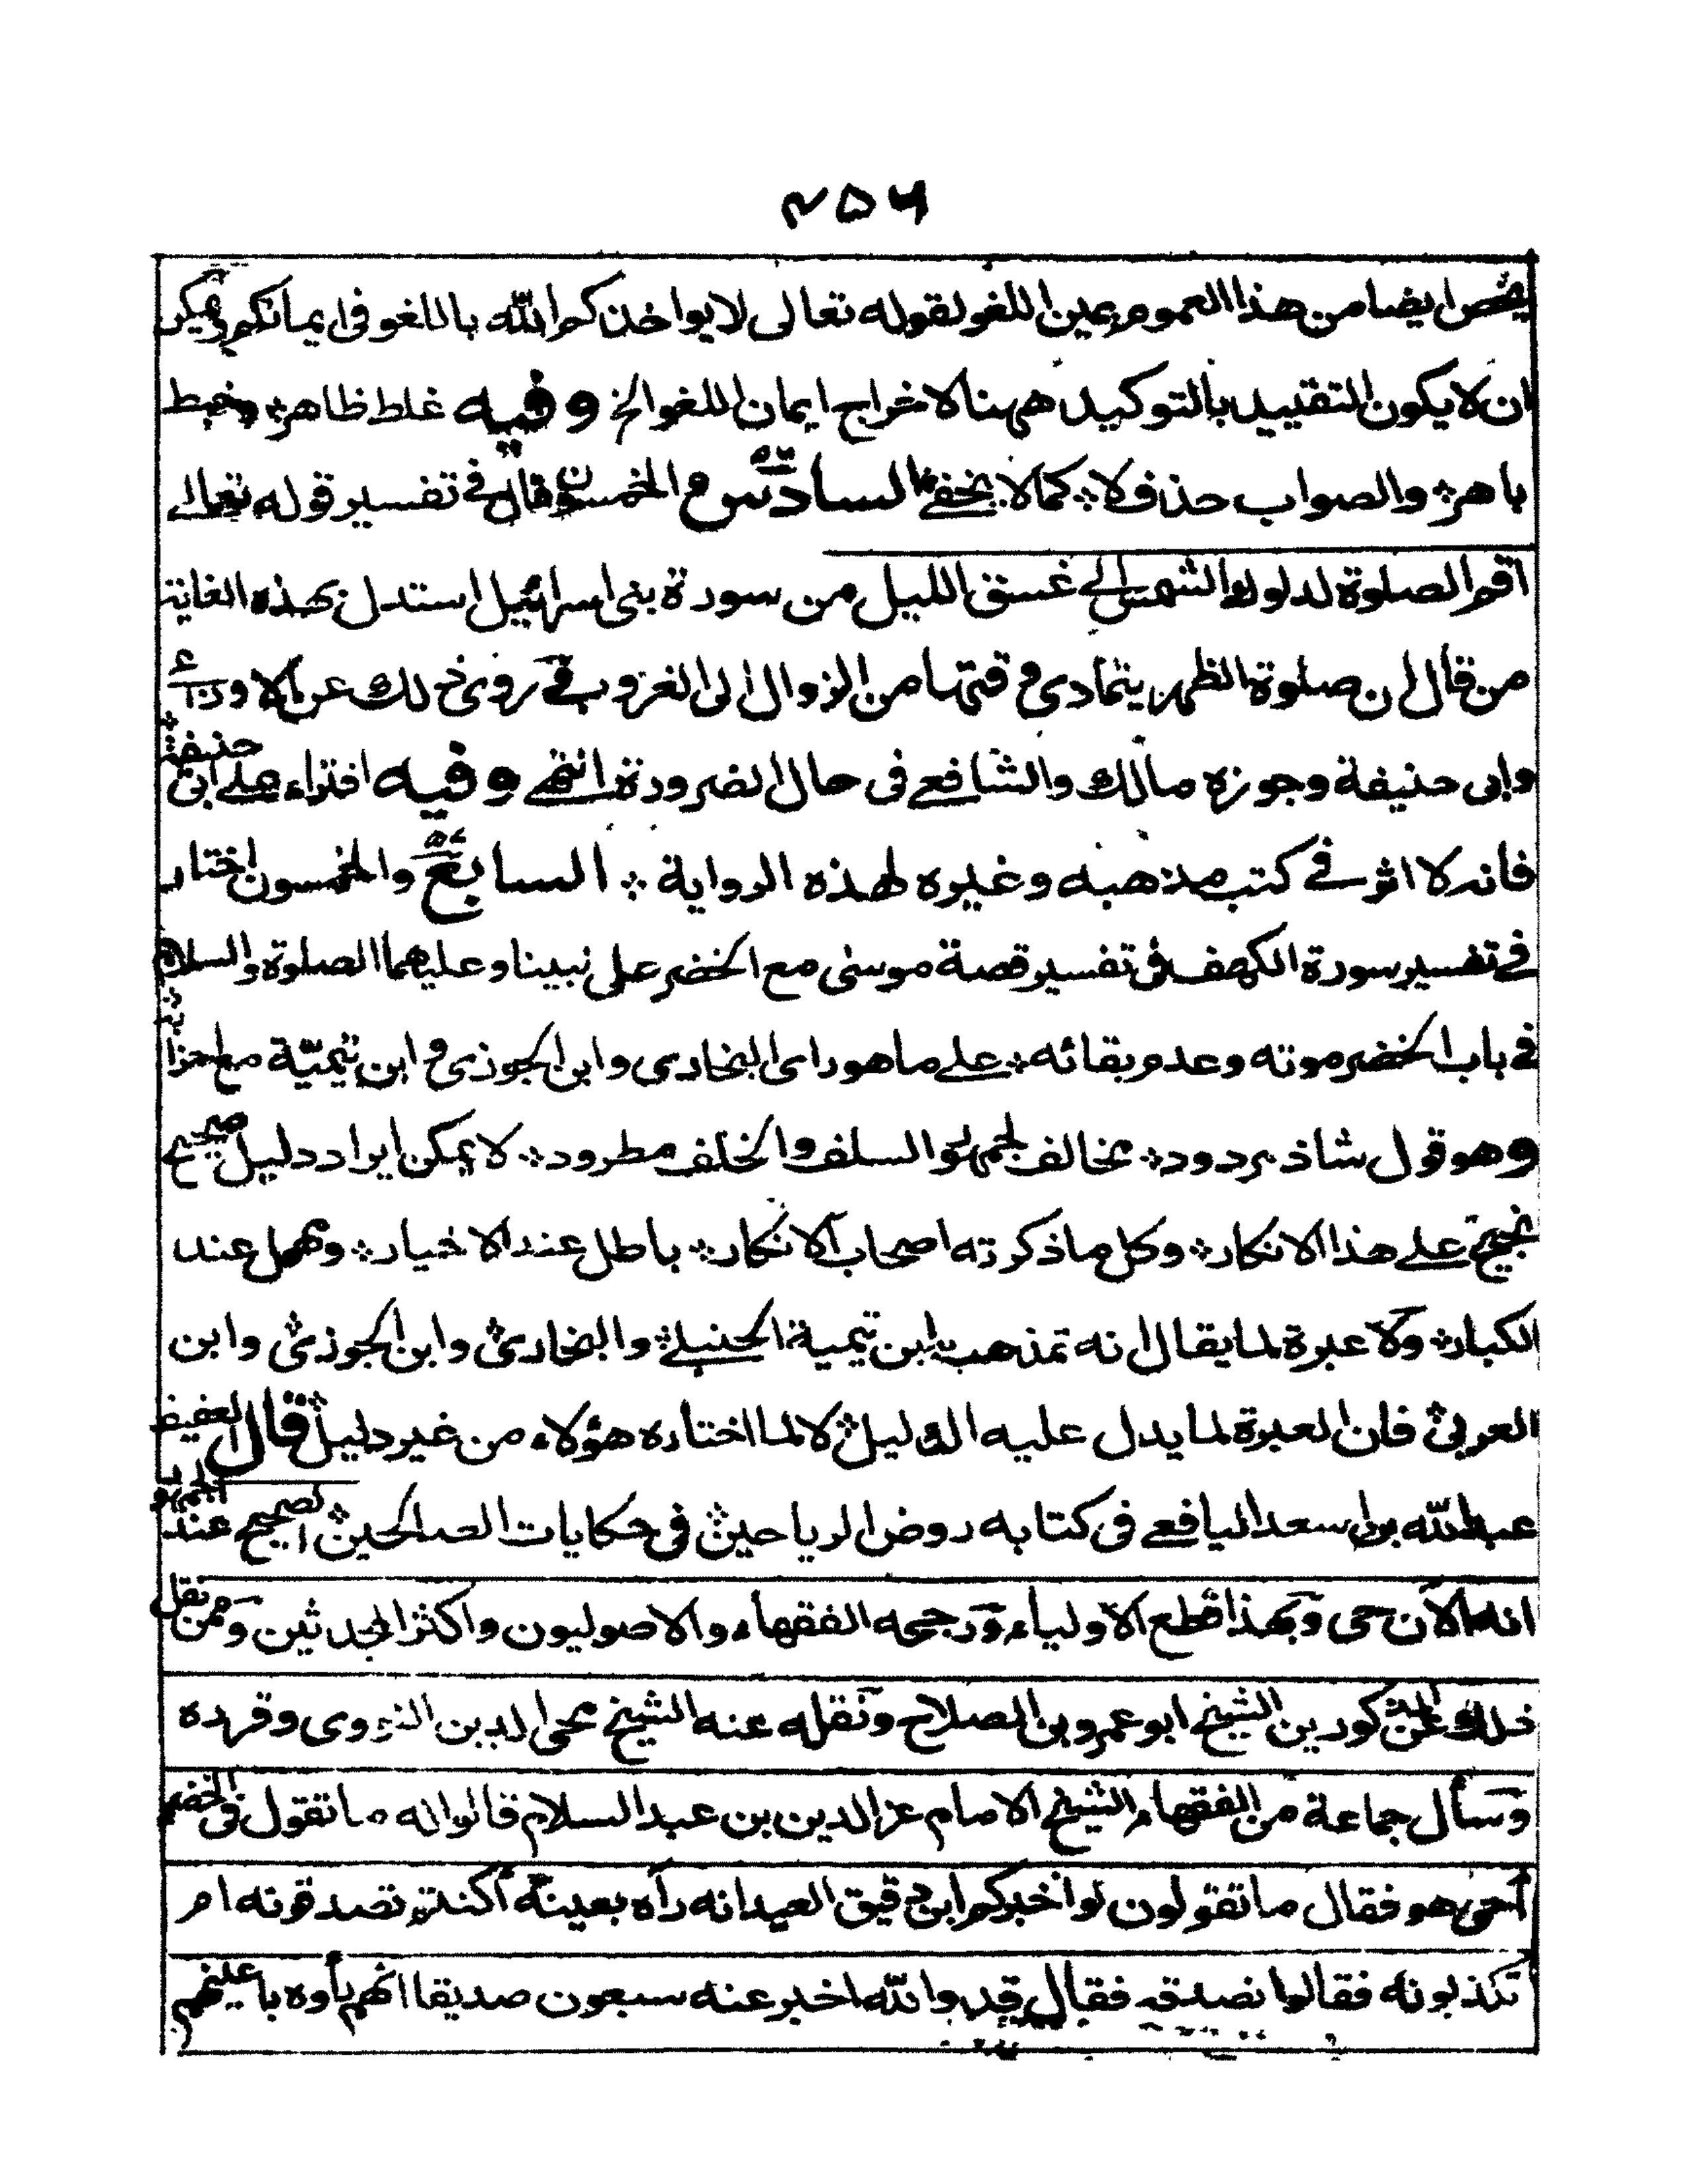 ٢٥٦
يخص ايضا من هذا العموم يمين اللغو لقوله تعالى لا يواخذكم الله باللغو في ايمانكم ويمكن
ان لا يكون التقييد بالتوكيد ههنا لاخراج ايمان اللغو الخ وفيه غلط ظاهر؞ وخبط
باهر؞ والصواب حذف لا؞ كما لا يخفے؞ السادس والخمسون قال في تفسير قوله تعالے
اقم الصلوة لدلوك الشمس الے غسق الليل من سورة بنى اسرائيل استدل بهذه الغاية
من قال ان صلوة الظهر يتمادى وقتها من الزوال الى الغروب وقد روى ذلك عن الاوزاعے
وابى حنيفة وجوزه مالك والشافعے فى حال الضرورة انتهے وفيه افتراء علے ابى حنيفة؞
فانه لا اثر فے كتب مذهبه وغيره لهذه الرواية ؞ السابع والخمسون اختار
فے تفسير سورة الكهف فى تفسير قصة موسى مع الخضر على نبينا وعليهما الصلوة والسلام
فے باب الخضر موته وعدم بقائه؞ علے ما هو راى البخارى وابن الجوزى وابن تيميّة مع احزابه؞
وهو قول شاذ مردود؞ مخالف لجمهور السلف والخلف مطرود؞ لا يمكن ايراد دليل صحيح
نجيح علے هذا الانكار؞ وكل ما ذكرته اصحاب الانكار؞ باطل عند الاخيار؞ ومهمل عند
الكبار؞ ولا عبرة لما يقال انه تمذهب به ابن تيمية الحنبلے؞ والبخارى؞ وابن الجوزى؞ وابن
العربى؞ فان العبرة لما يدل عليه الدليل؞ لا لما اختاره هؤلاء من غير دليل؞ قال العفيف
عبد الله بن اسعد اليافعے فى كتابه روض الرياحين؞ فى حكايات الصالحين؞ الصحيح عند الجمهور
انه الآن حى وبهذا قطع الاولياء ورجحه الفقهاء والاصوليون واكثر المحدثين وممن نقل
ذلك عن المذكورين الشيخ ابو عمرو بن الصلاح ونقله عنه الشيخ محى الدين النووى وقرره
وسأل جماعة من الفقهاء الشيخ الامام عز الدين بن عبد السلام قالوا له ما تقول فى الخضر
أحى هو فقال ما تقولون لو اخبركم ابن دقيق العيد انه رآه بعينه أكنتم تصدقونه ام
تكذبونه فقالوا نصدقه فقال قد والله اخبر عنه سبعون صديقا انهم رأوه باعينهم